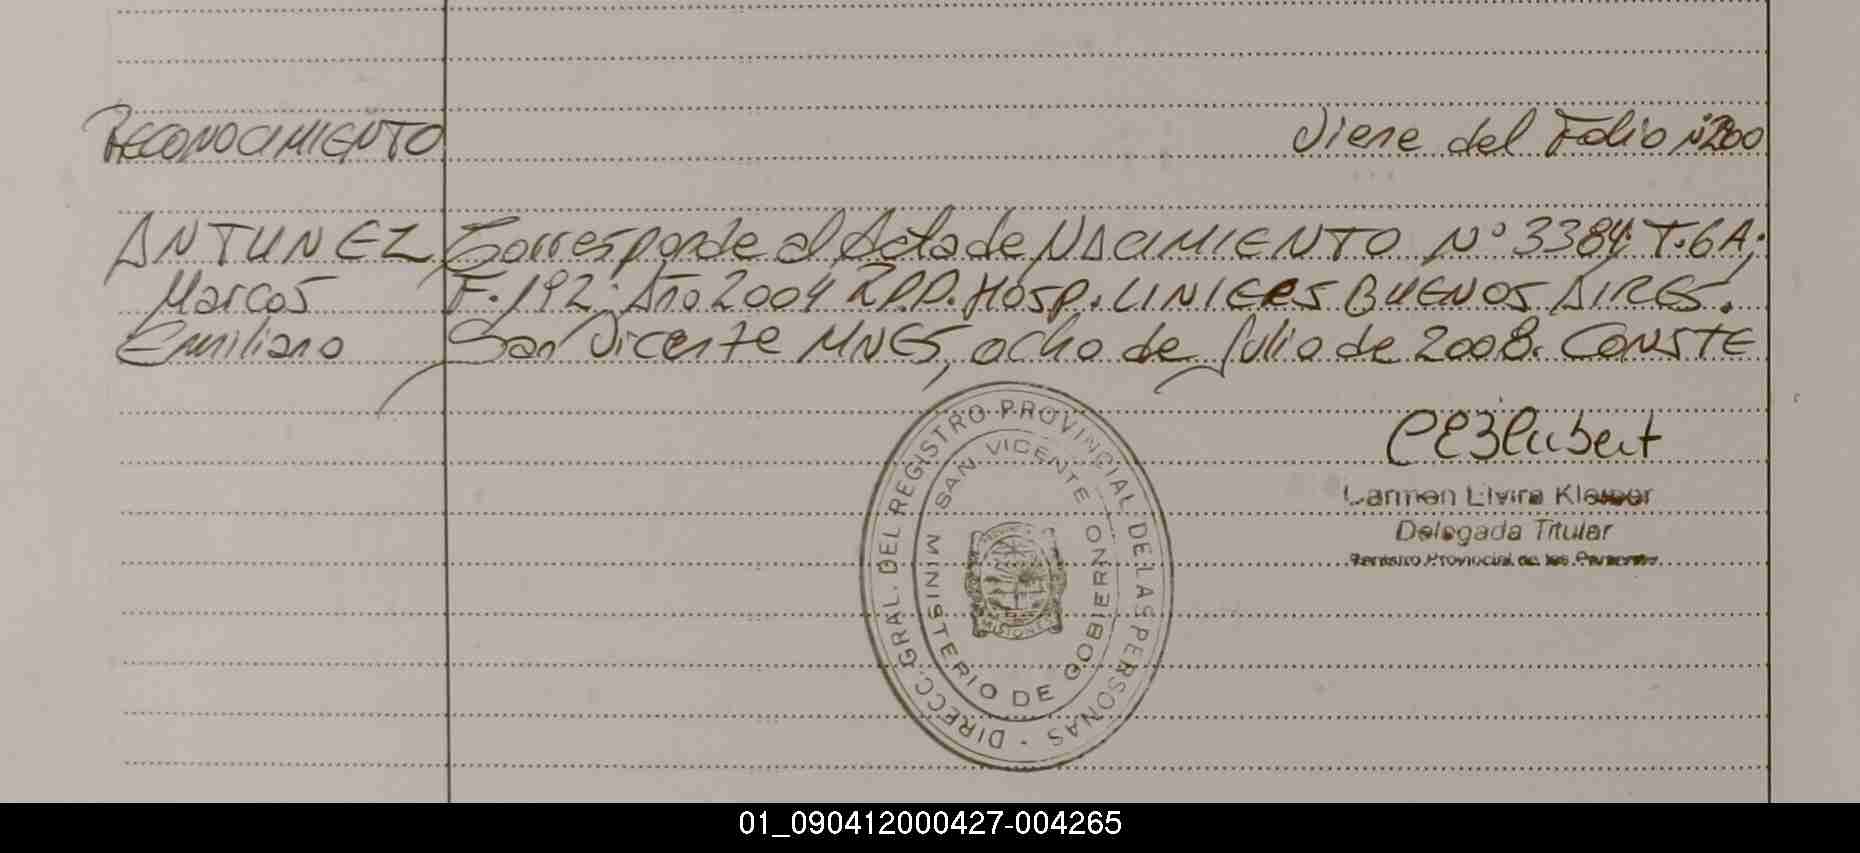 RECONOCIMIENTO
Viene del Folio Nº200
ANTUNEZ
Marcos
Emiliano
Corresponde al Acta de NACIMIENTO Nº 3384 T.6A;
F.192. Año 2004 R.P.P. Hosp. LINIERS BUENOS AIRES.
San Vicente MNES, ocho de Julio de 2008. CONSTE
Carmen Elvira
Delegada Titular
Registro Provincial de las Personas
DIRECC. GRAL. DEL REGISTRO PROVINCIAL DE LAS PERSONAS -
MINISTERIO DE GOBIERNO
SAN VICENTE
MISIONES
01_090412000427-004265